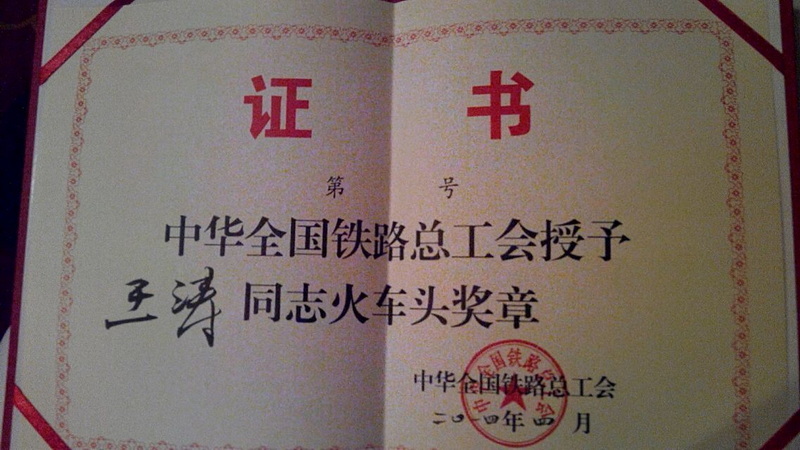 证 书
第 号
中华全国铁路总工会授予
王涛 同志火车头奖章
中华全国铁路总工会
二〇一四年四月